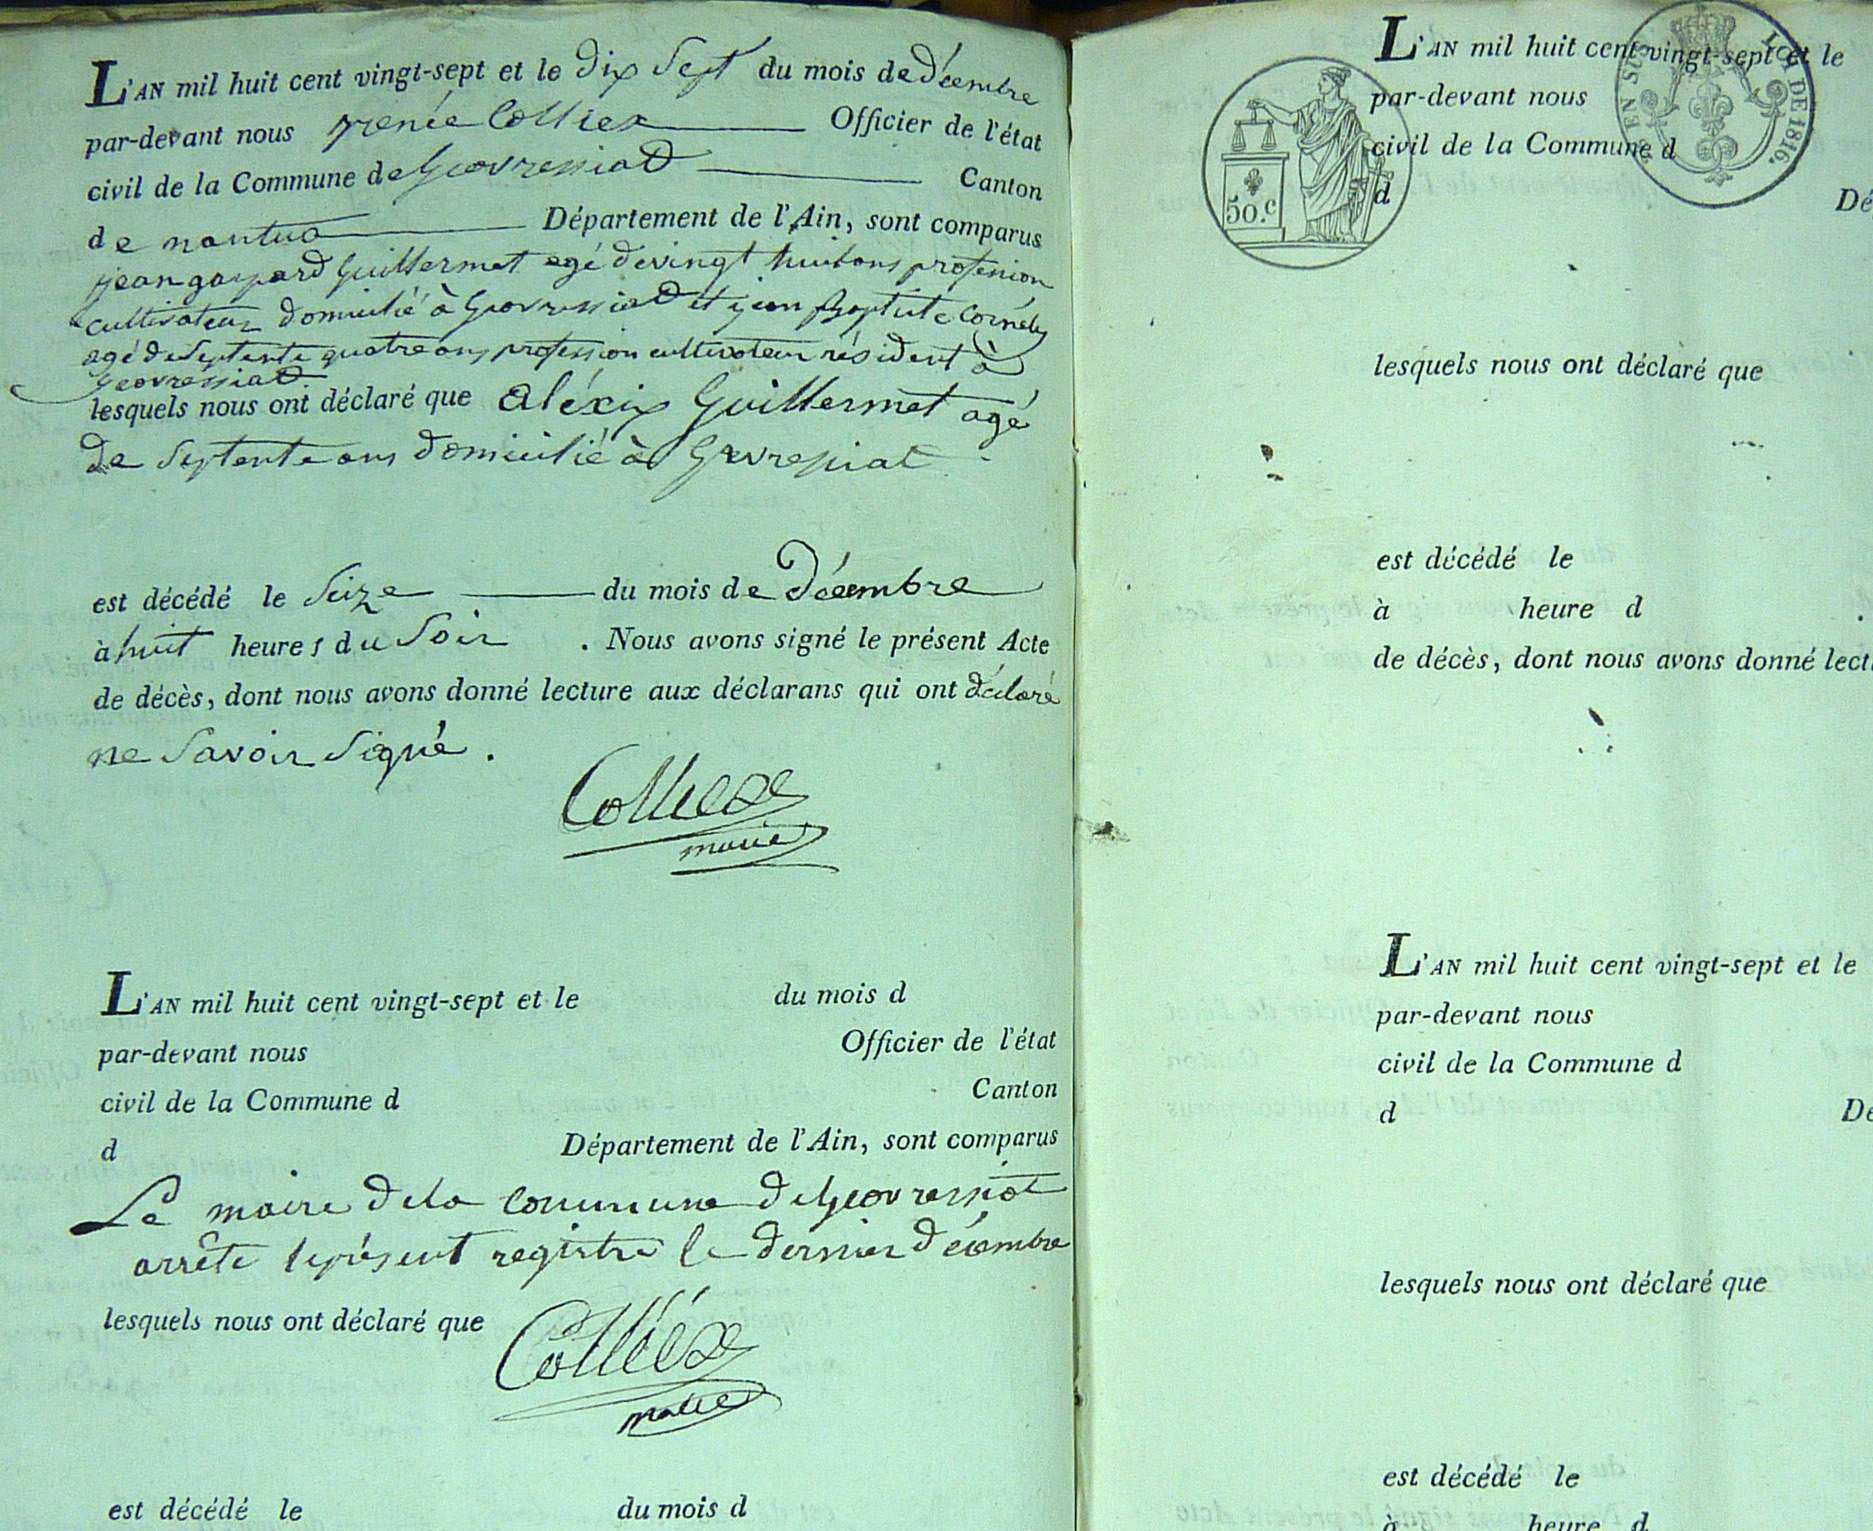 L'AN mil huit cent vingt-sept et le dix Sept du mois de décembre
par-devant nous renée Colliex Officier de l'état
civil de la Commune de Geovressiad Canton
de nantua Département de l'Ain, sont comparus
jean gaspard Guillermet agé de vingt huit ans profession
cultivateur domicilié à Geovressiad et jean Baptiste Cornély
agé de Septente quatre ans profession cultivateur résident à
Geovressiad
lesquels nous ont déclaré que aléxix Guillermet agé
de Septente ans domicilié à Gevressiat
est décédé le Seize du mois de Décembre
à huit heures du Soir . Nous avons signé le présent Acte
de décès, dont nous avons donné lecture aux déclarans qui ont déclaré
ne Savoir Signé.
Colliex
maire
L'AN mil huit cent vingt-sept et le du mois d
par-devant nous Officier de l'état
civil de la Commune d Canton
d Département de l'Ain, sont comparus
Le maire de la commune de Geovressiat
arrête le présent registre le dernier Décembre
lesquels nous ont déclaré que
Colliéx
maire
est décédé le du mois d
L'AN mil huit cent vingt-sept et le
par-devant nous
civil de la Commune d
d Dé
50.c
EN SUS
LOI DE 1816.
lesquels nous ont déclaré que
est décédé le
à heure d .
de décès, dont nous avons donné lect
L'AN mil huit cent vingt-sept et le
par-devant nous
civil de la Commune d
d Dé
lesquels nous ont déclaré que
est décédé le
à heure d